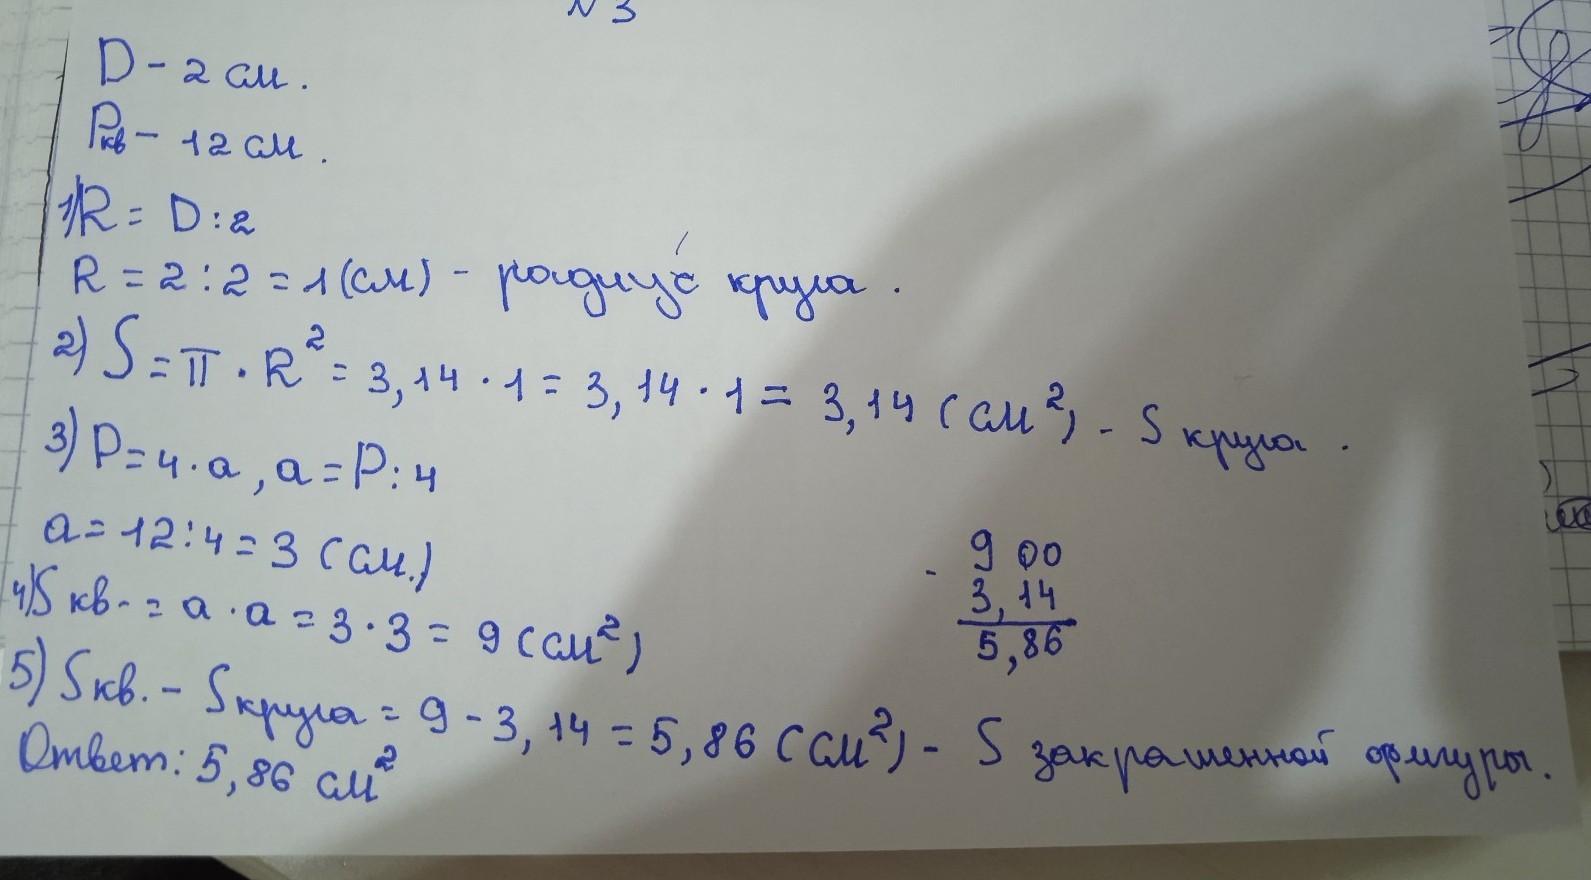 N 3
D - 2 см.
Pкв - 12 см.
1) R = D : 2
R = 2 : 2 = 1 (см) - радиус круга.
2) S = π · R² = 3,14 · 1 = 3,14 · 1 = 3,14 (см²) - S круга.
3) P = 4 · a, a = P : 4
a = 12 : 4 = 3 (см.)
4) S кв. = a · a = 3 · 3 = 9 (см²)
- 9 00
3,14
5,86
5) S кв. - S круга = 9 - 3,14 = 5,86 (см²) - S закрашенной фигуры.
Ответ: 5,86 см²